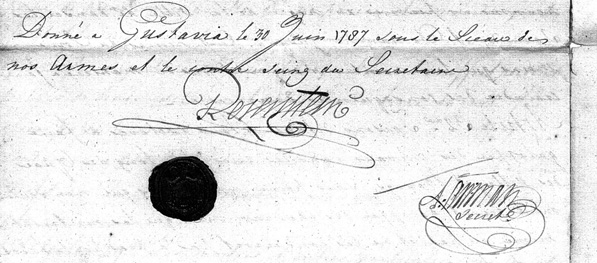 Donné a Gustavia le 30 Juin 1787 sous le Sceau de
nos Armes et le contre seing du Secretaire
Rosenstein
Secret.